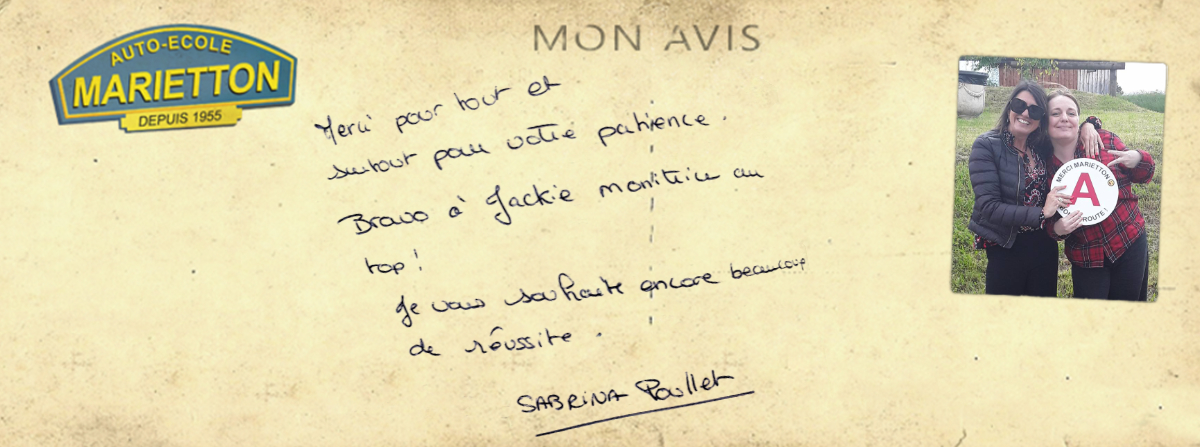 AUTO-ECOLE
MARIETTON
DEPUIS 1955
MON AVIS
Merci pour tout et
surtout pour votre patience.
Bravo à Jackie monitrice au
top !
Je vous souhaite encore beaucoup
de réussite.
SABRINA Poullet
MERCI MARIETTON
A
ROUTE !